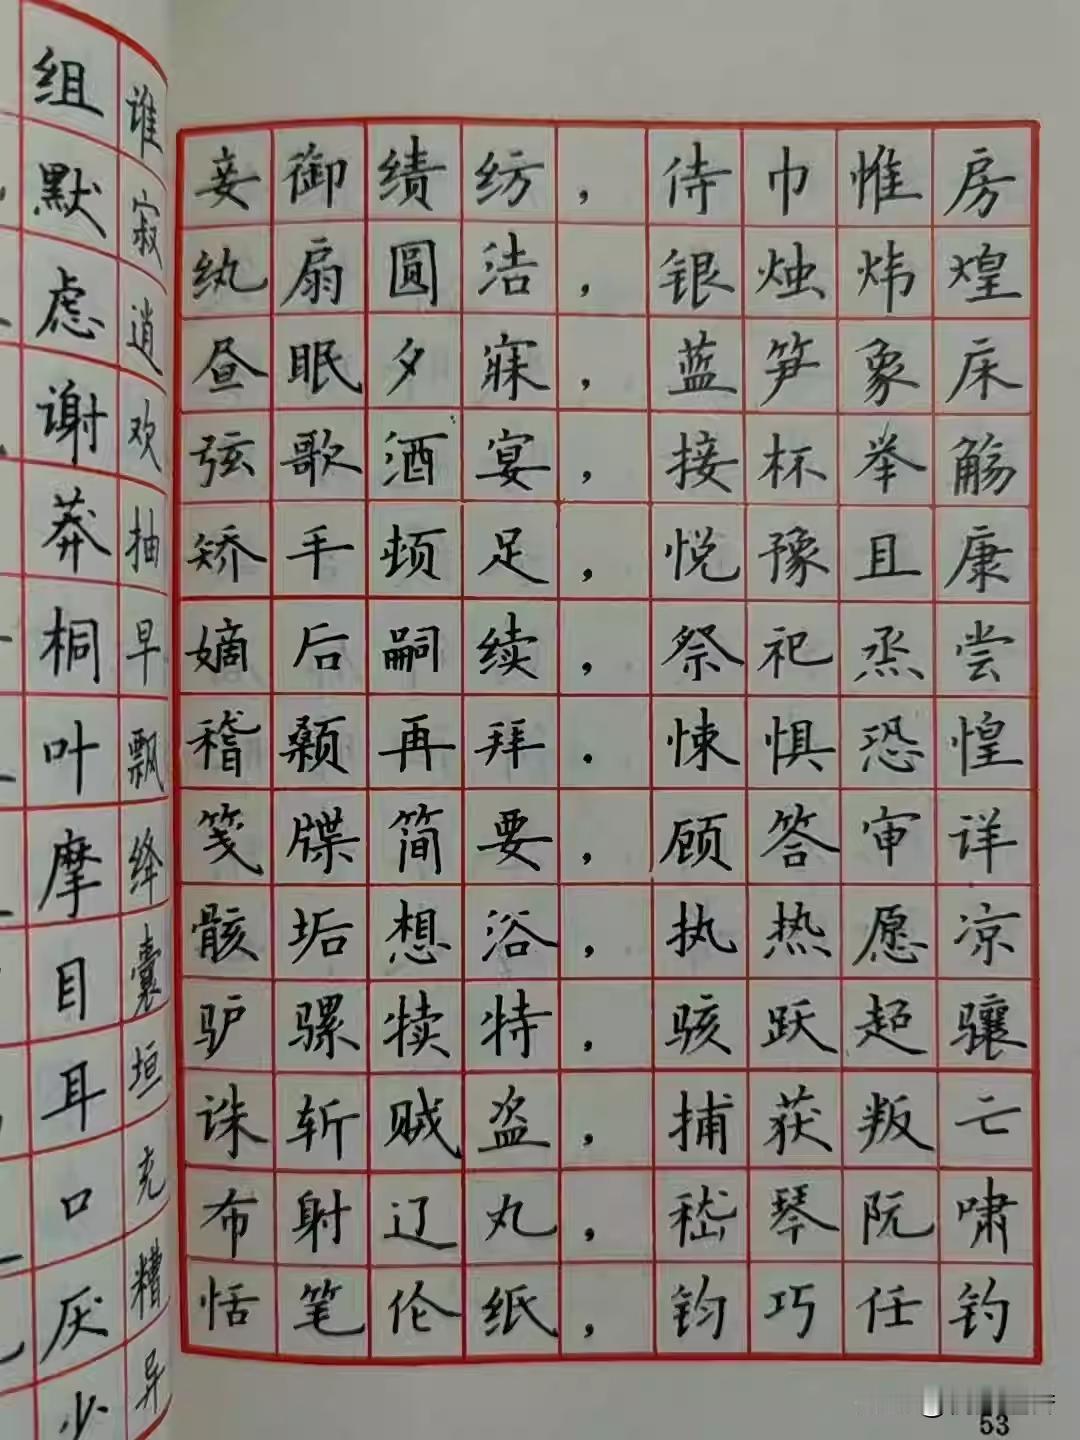 组谁
默寂
虑逍
谢欢
莽抽
桐早
叶飘
摩绛
目囊
耳垣
口充
厌糟
少异
妾御绩纺，侍巾帷房
纨扇圆洁，银烛炜煌
昼眠夕寐，蓝笋象床
弦歌酒宴，接杯举觞
矫手顿足，悦豫且康
嫡后嗣续，祭祀烝尝
稽颡再拜．悚惧恐惶
笺牒简要，顾答审详
骸垢想浴，执热愿凉
驴骡犊特，骇跃超骧
诛斩贼盗，捕获叛亡
布射辽丸，嵇琴阮啸
恬笔伦纸，钧巧任钓
53